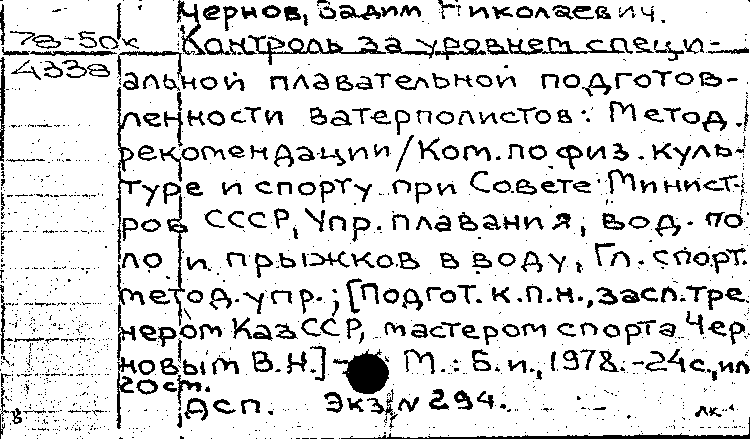 Чернов, Вадим Николаевич.
78-50к Контроль за уровнем специ-
4338 альной плавательной подготов-
ленности ватерполистов: Метод.
рекомендации/Ком. по физ. куль-
туре и спорту при Совете Минист-
ров СССР, Упр. плавания, вод. по
ло и прыжков в воду, Гл. спорт.
метод. упр.; [Подгот. к.п.н., засл. тре
нером КазССР, мастером спорта Чер
новым В.Н.] - М.: Б. и., 1978. - 24 с., ил
20 см.
ДСП. Экз. N 294.
в лк-